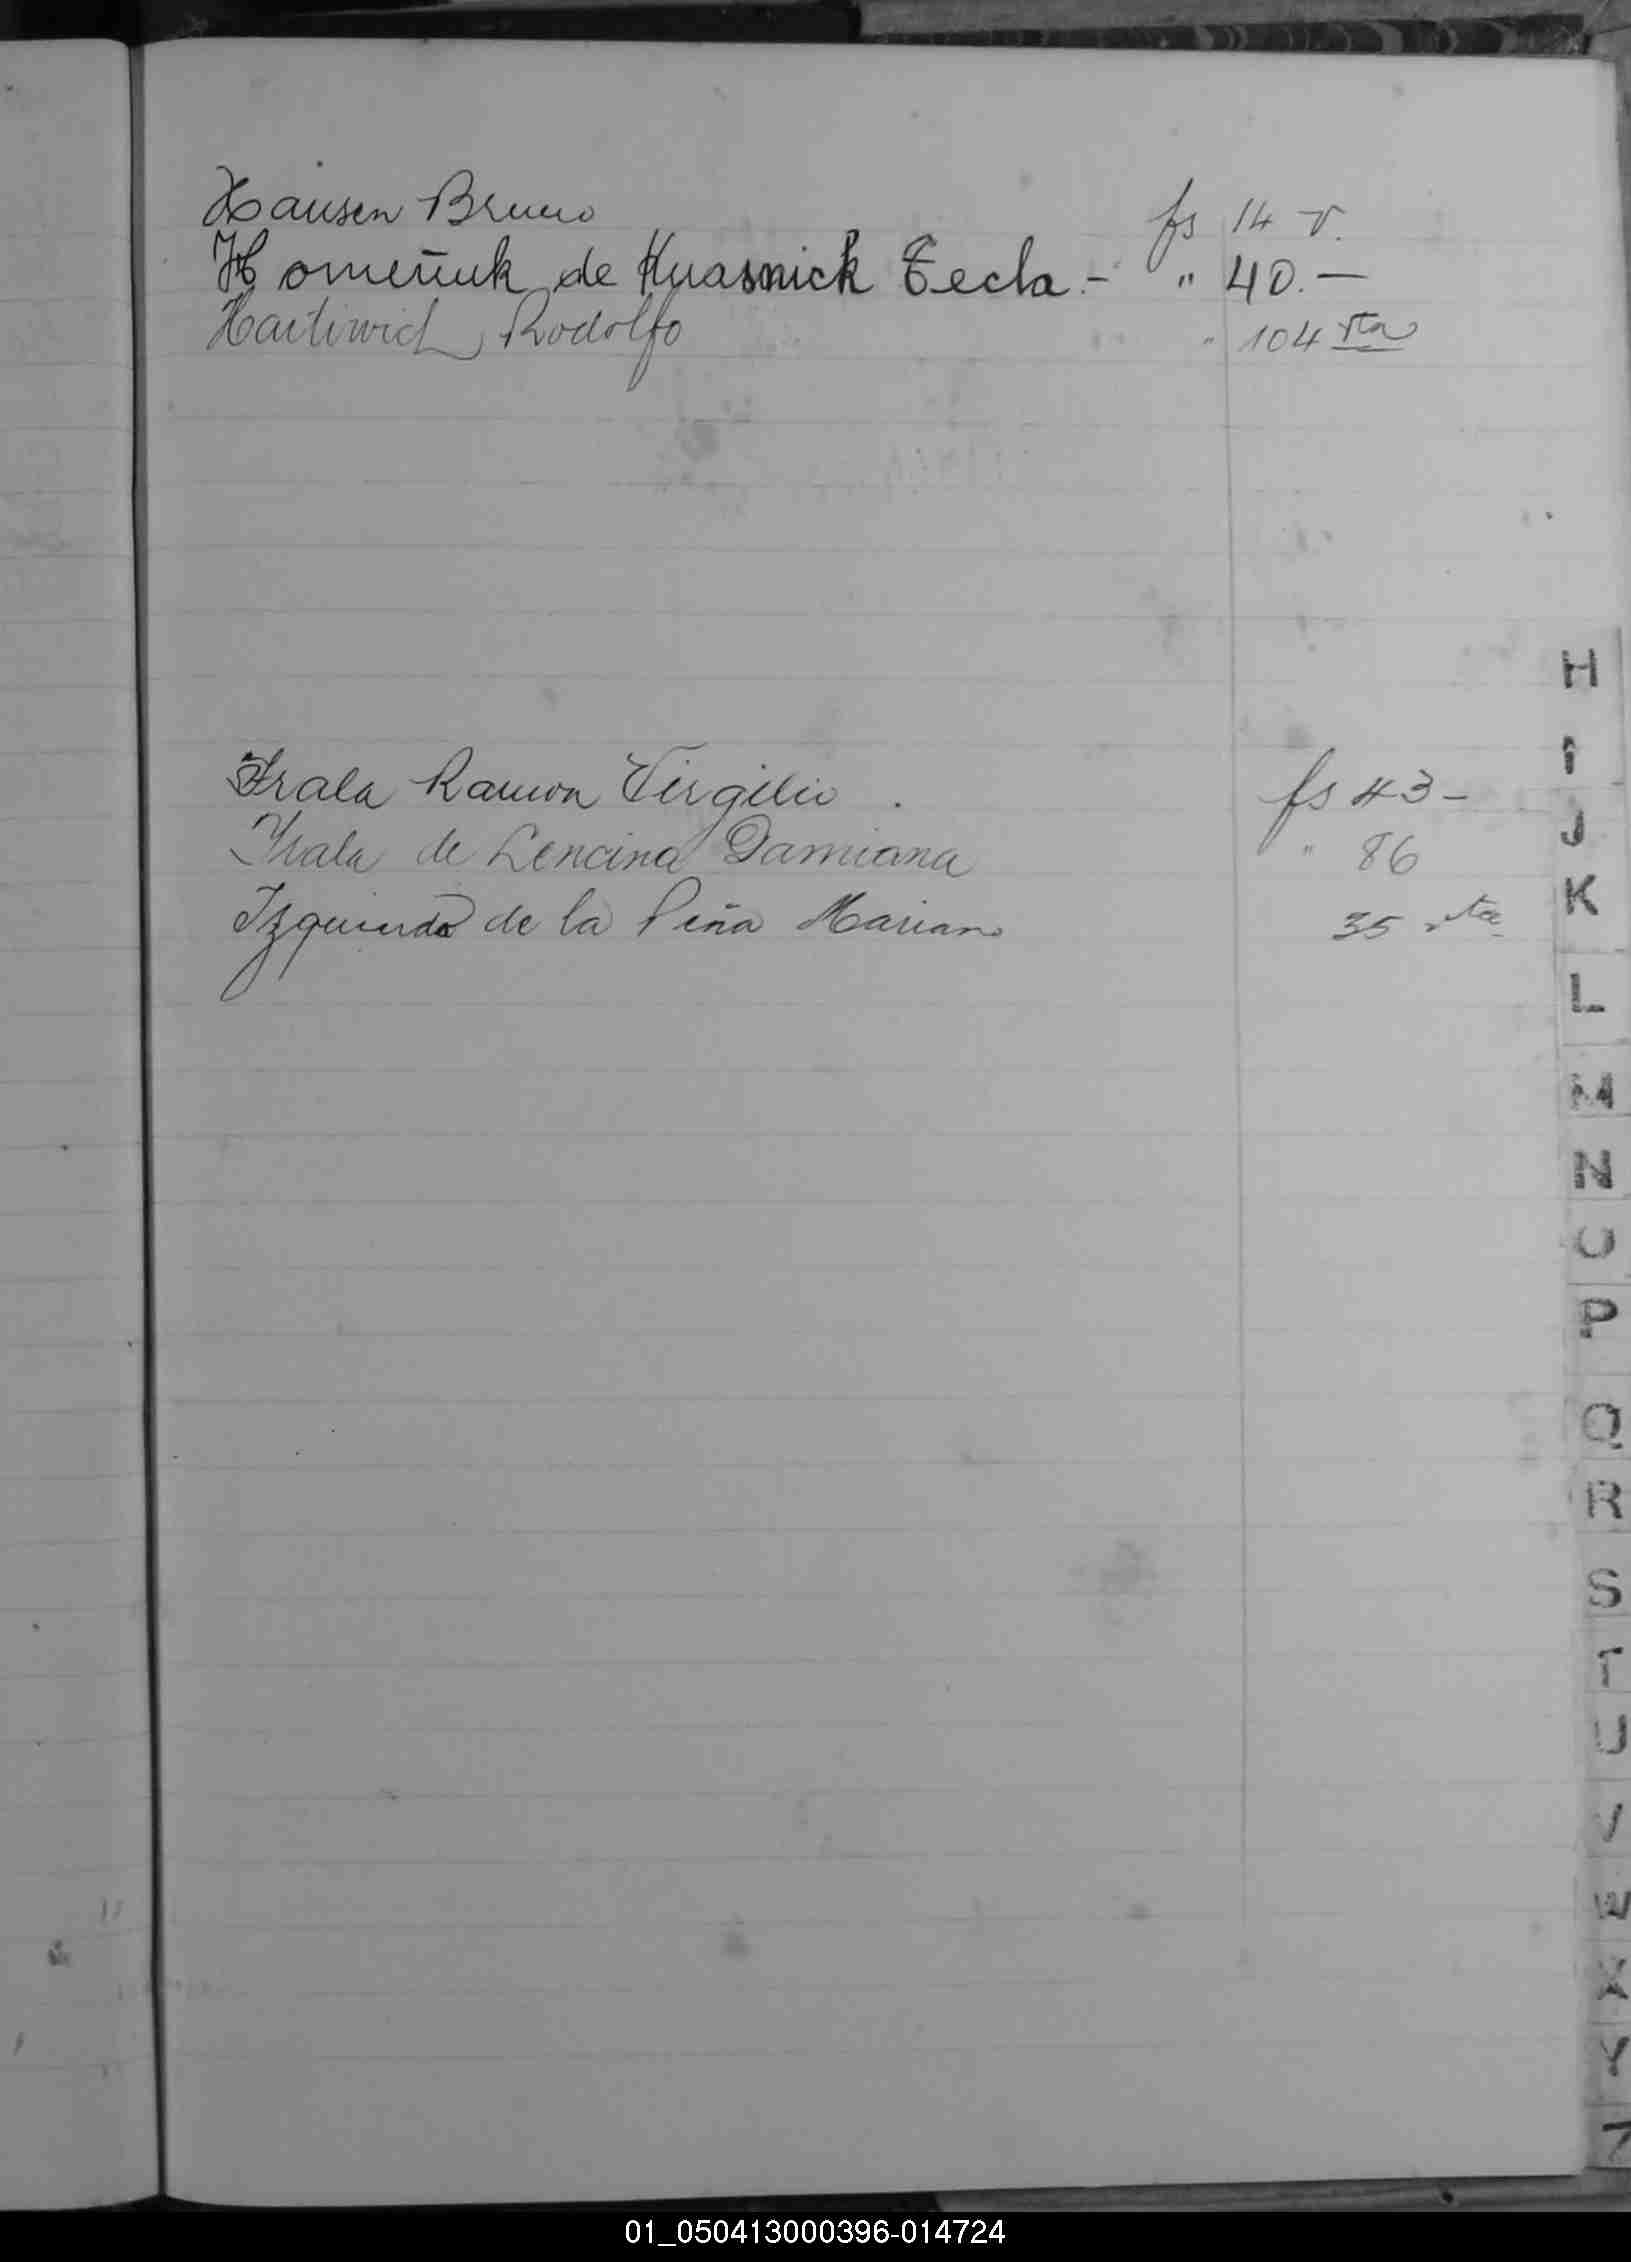 Hausen Bruno fs 14 v.
Homeñuk de Kuasnick Tecla.- " 40.-
Hartiwich Rodolfo " 104 vta
Irala Ramon Virgilio . fs 43-
Irala de Lencina Damiana " 86
Izquierdo de la Peña Mariano 35 vta
H
I
J
K
L
M
N
O
P
Q
R
S
T
U
V
W
X
Y
Z
01_050413000396-014724